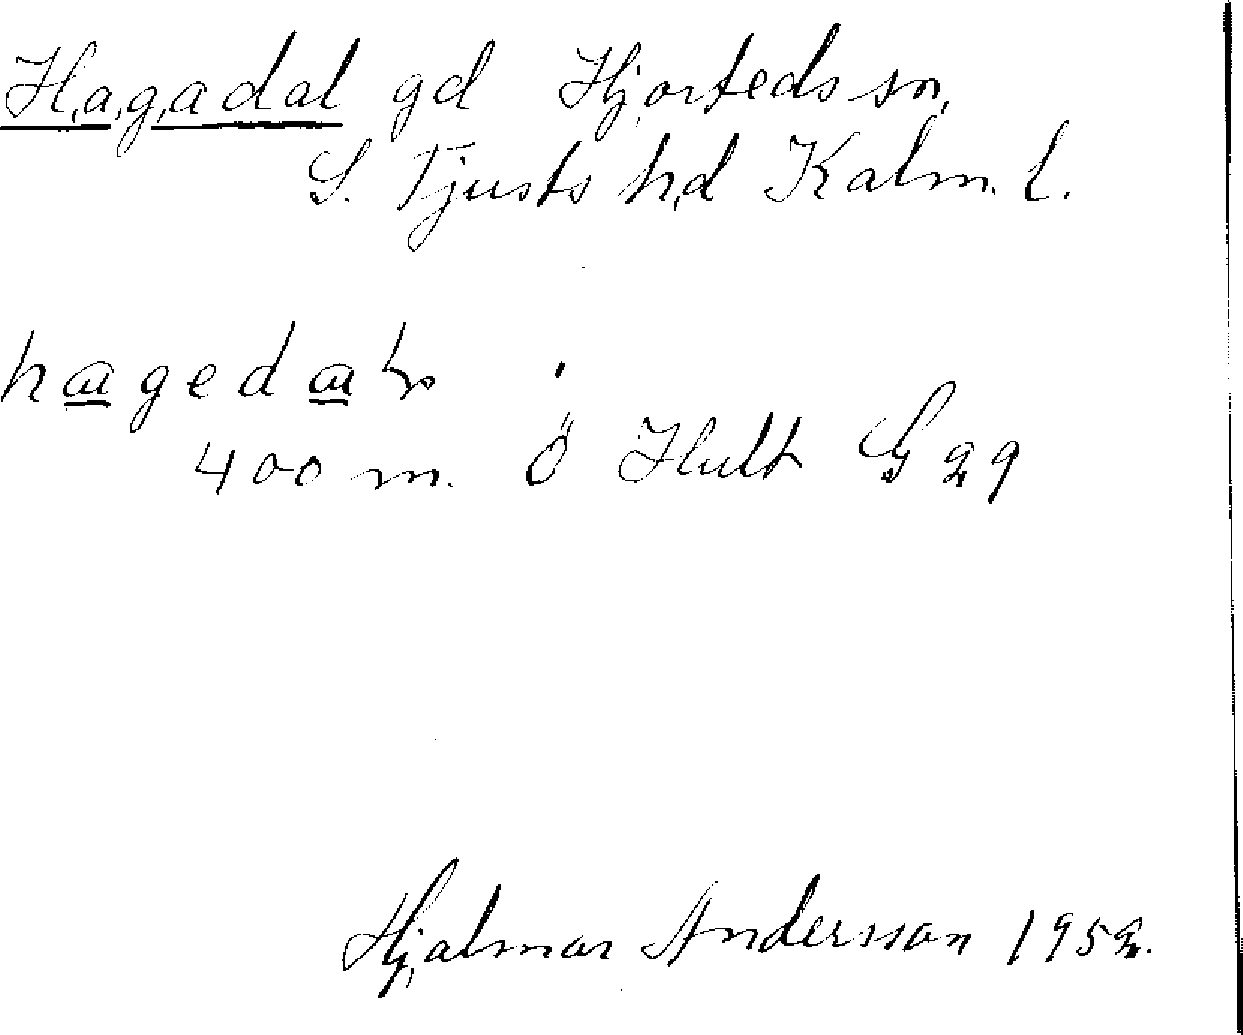 Hagadal gd Hjorteds sn,
S. Tjusts hd Kalm. l.
hagedal
400 m. Ö Hult G 29
Hjalmar Andersson 1952.